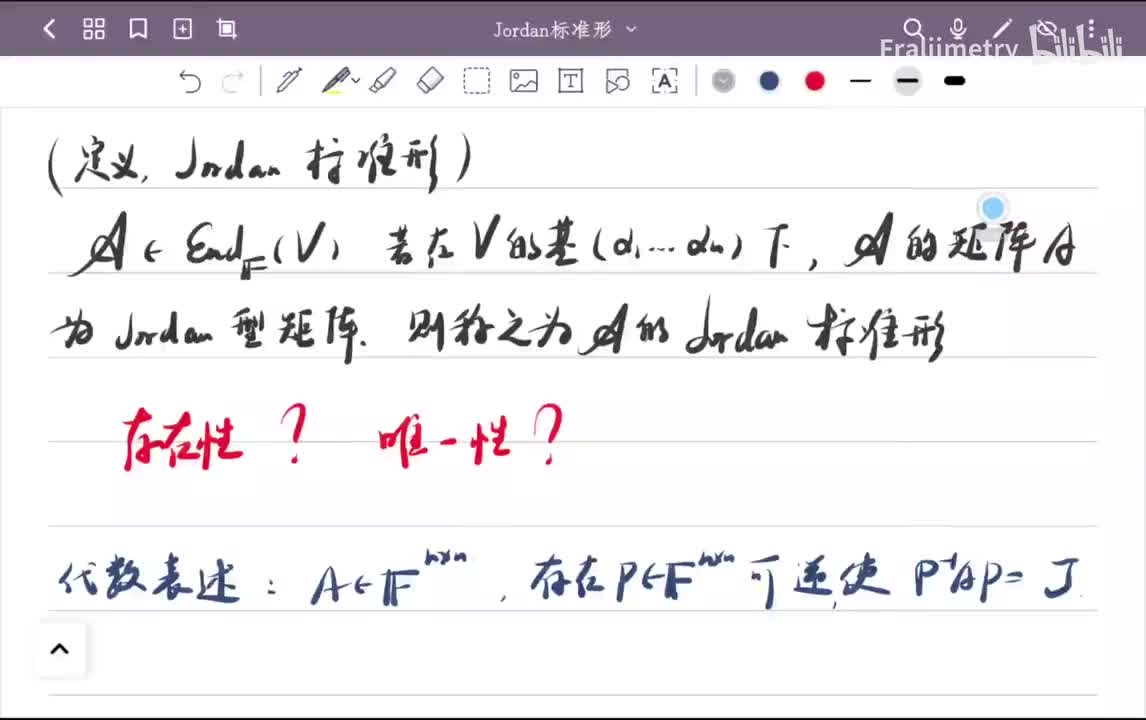 Jordan标准形
Fraljimetry bilibili
(定义, Jordan 标准形)
𝒜 ∈ End_𝔽(V) 若在V的基(α₁…αₙ)下, 𝒜的矩阵A
为Jordan型矩阵. 则称之为𝒜的Jordan标准形
存在性? 唯一性?
代数表述: A∈𝔽ⁿˣⁿ, 存在P∈𝔽ⁿˣⁿ可逆,使 P⁻¹AP=J